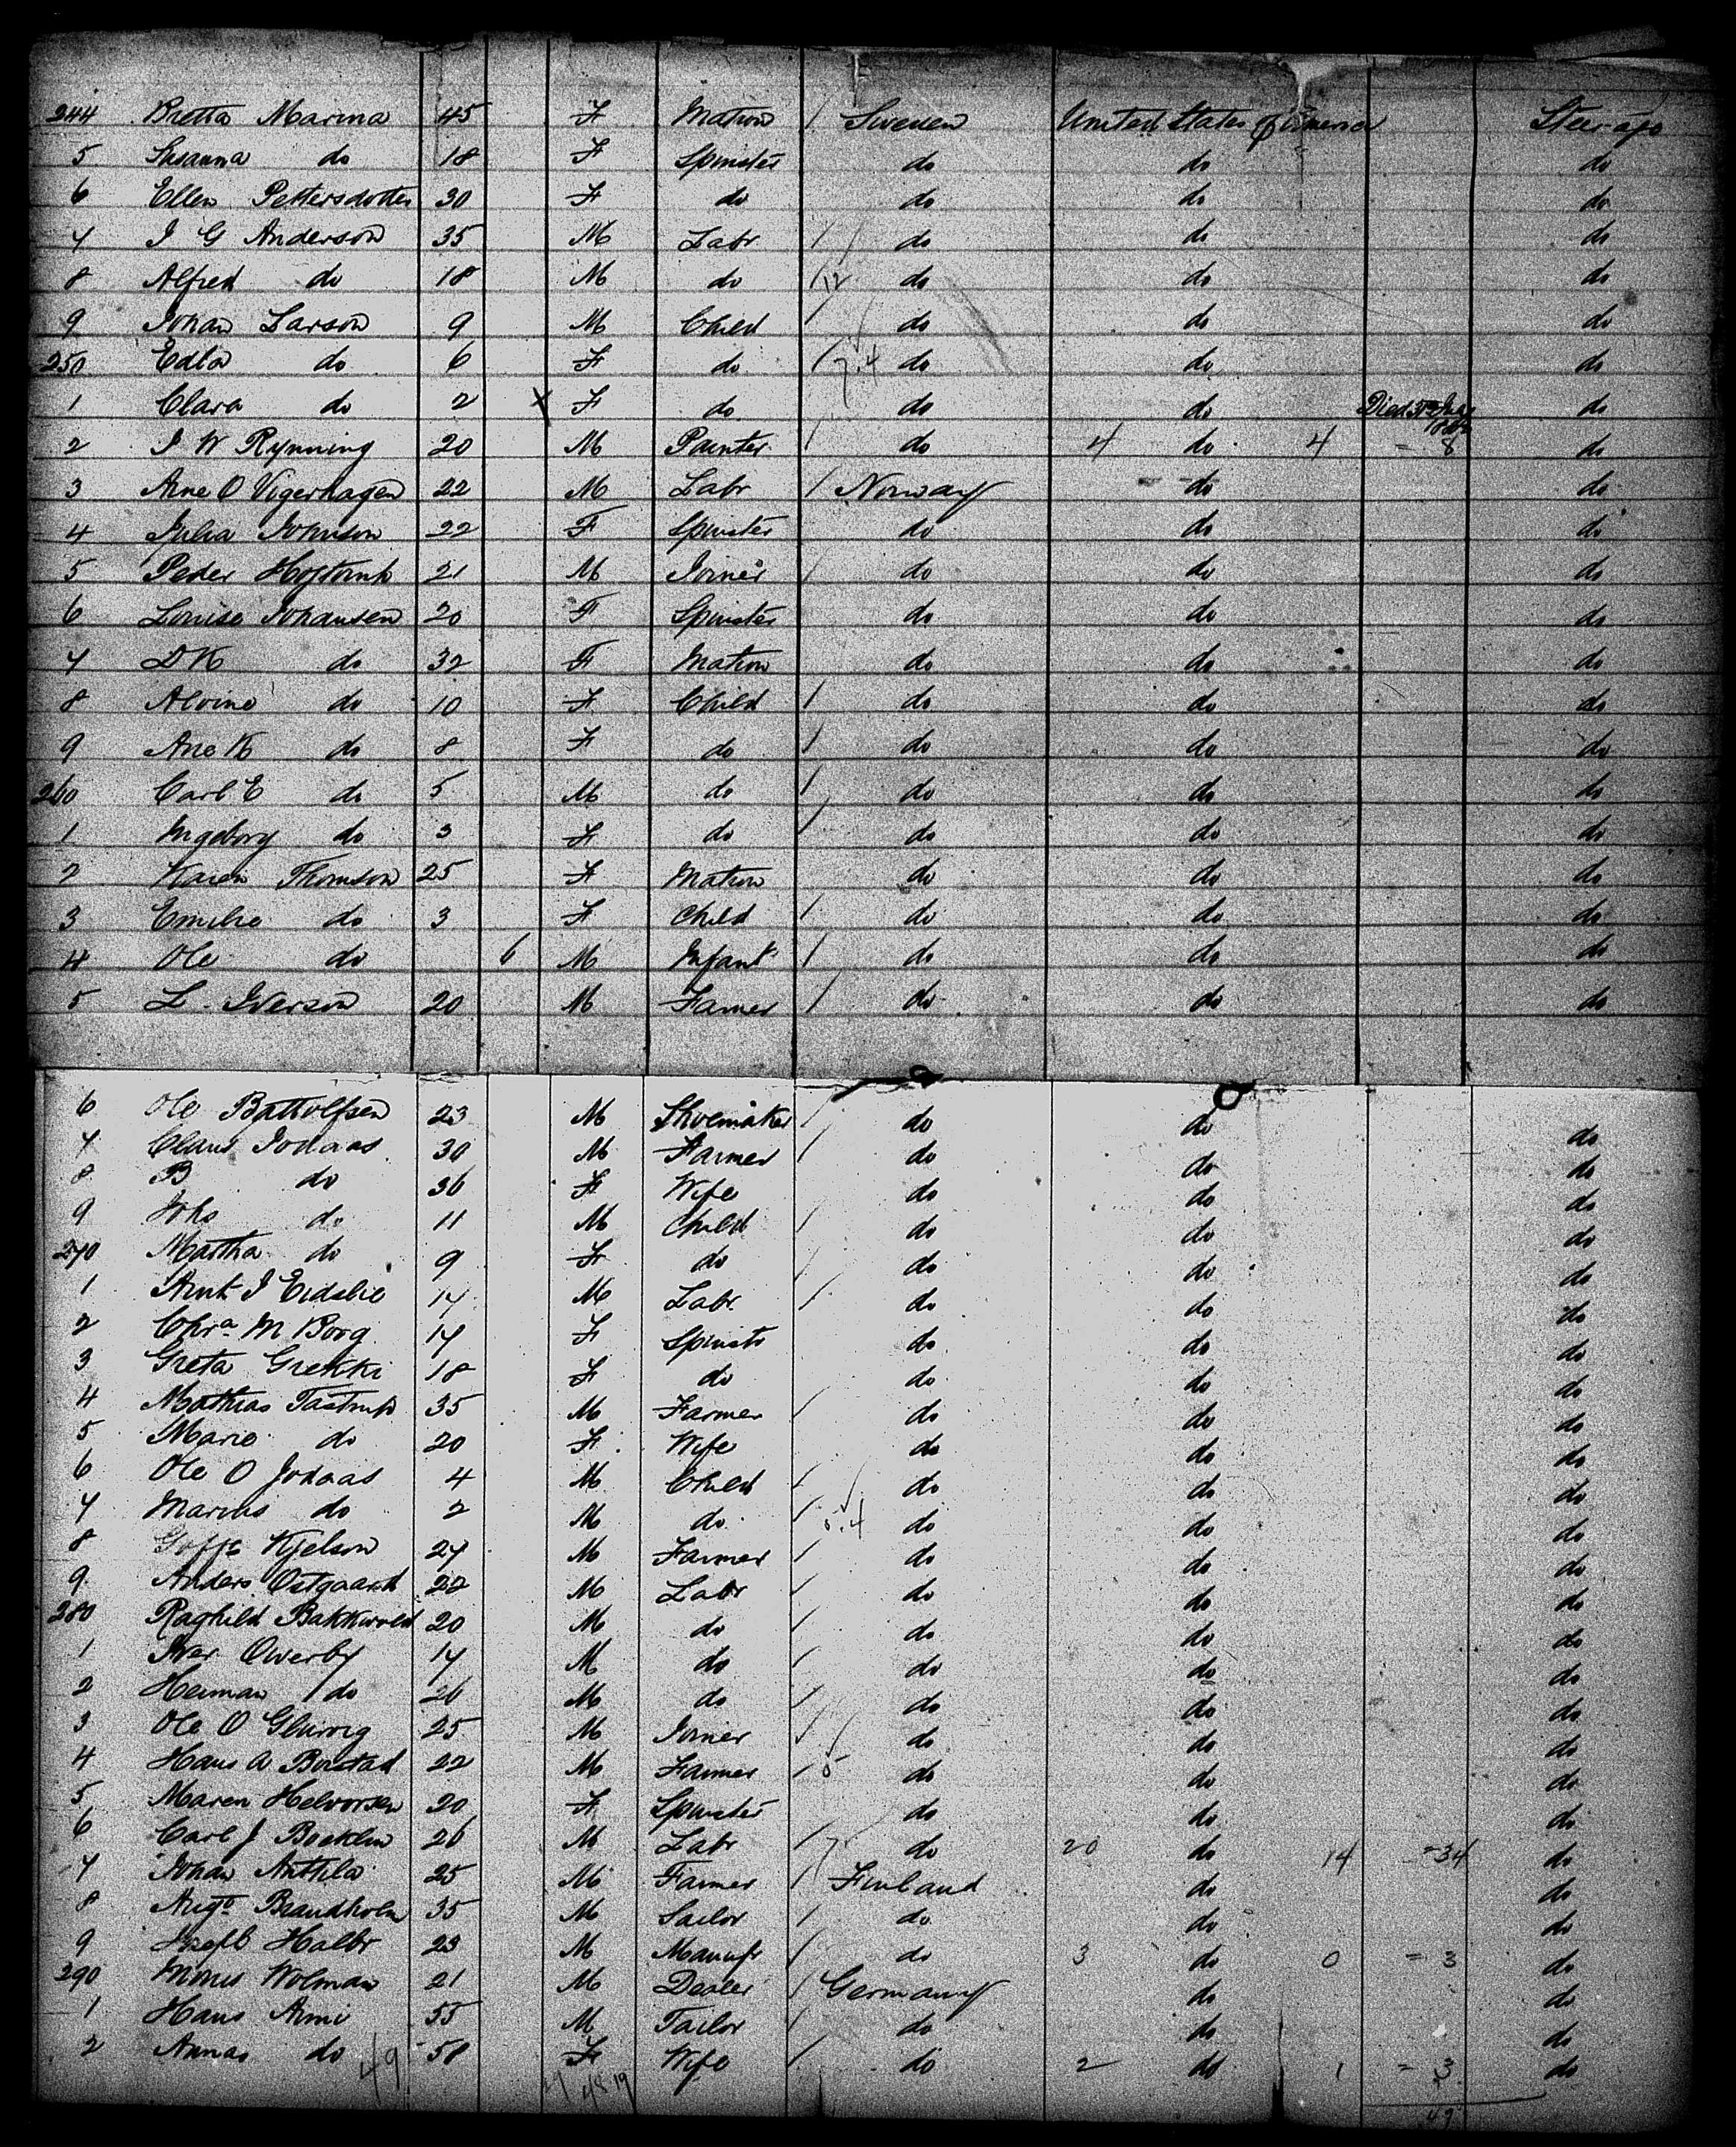 244 Bretta Marina 45 F Matron / Sweden United States of America Steerage
5 Susanna do 18 F Spinster do do do
6 Ellen Pettersdotter 30 F do do do do
7 I G Anderson 35 M Labr / do do do
8 Alfred do 18 M do / 12 do do do
9 Johan Larson 9 M Child / do do do
250 Edla do 6 F do / 7.4 do do do
1 Clara do 2 X F do do do Died do
2 I W Rynning 20 M Painter / do 4 do 4 = 8 do
3 Arne O Vigerhagen 22 M Labr / Norway do do
4 Julia Johnson 22 F Spinster do do do
5 Peder 21 M Joiner / do do do
6 Louise Johansen 20 F Spinster do do do
7 D K do 32 F Matron do do do
8 Alvine do 10 F Child / do do do
9 Ane K do 8 F do / do do do
260 Carl E do 5 M do / do do do
1 Ingeborg do 3 F do / do do do
2 Karen Thomson 25 F Matron do do do
3 Emilie do 3 F Child / do do do
4 Ole do 6 M Infant / do do do
5 L. Iverson 20 M Farmer / do do do
6 Ole Battolfsen 23 M Shoemaker / do do do
7 Claus Jodaas 30 M Farmer / do do do
8 B do 36 F Wife do do do
9 Johs do 11 M Child / do do do
270 Martha do 9 F do / do do do
1 Arnt J Eidslie 17 M Labr. / do do do
2 Chra M Borg 17 F Spinstr do do do
3 Greta Grekki 18 F do do do do
4 Mathias Tastrup 35 M Farmer / do do do
5 Marie do 20 F Wife do do do
6 Ole O Jodaas 4 M Child / do do do
7 Marius do 2 M do / do do do
8 Kjelson 27 M Farmer / do do do
9 Anders Ostgaard 22 M Labr / do do do
280 Raghild 20 M do / do do do
1 Iver Owerby 17 M do / do do do
2 Herman do 26 M do / do do do
3 Ole O 25 M Joiner / do do do
4 Hans A Borstad 22 M Farmer / do do do
5 Maren Helvorsen 20 F Spinster do do do
6 Carl J Boeklin 26 M Labr / 7 do 20 do 14 = 34 do
7 Johan Anttila 25 M Farmer / Finland do do
8 Augt Brandholm 35 M Sailor / do do do
9 Halbr 23 M Manufr / do 3 do 0 = 3 do
290 Wolman 21 M Dealer / Germany do do
1 Hans Armi 55 M Tailor / do do do
2 Annas do 58 F Wife / do 2 do 1 = 3 do
49 29 48 19
49